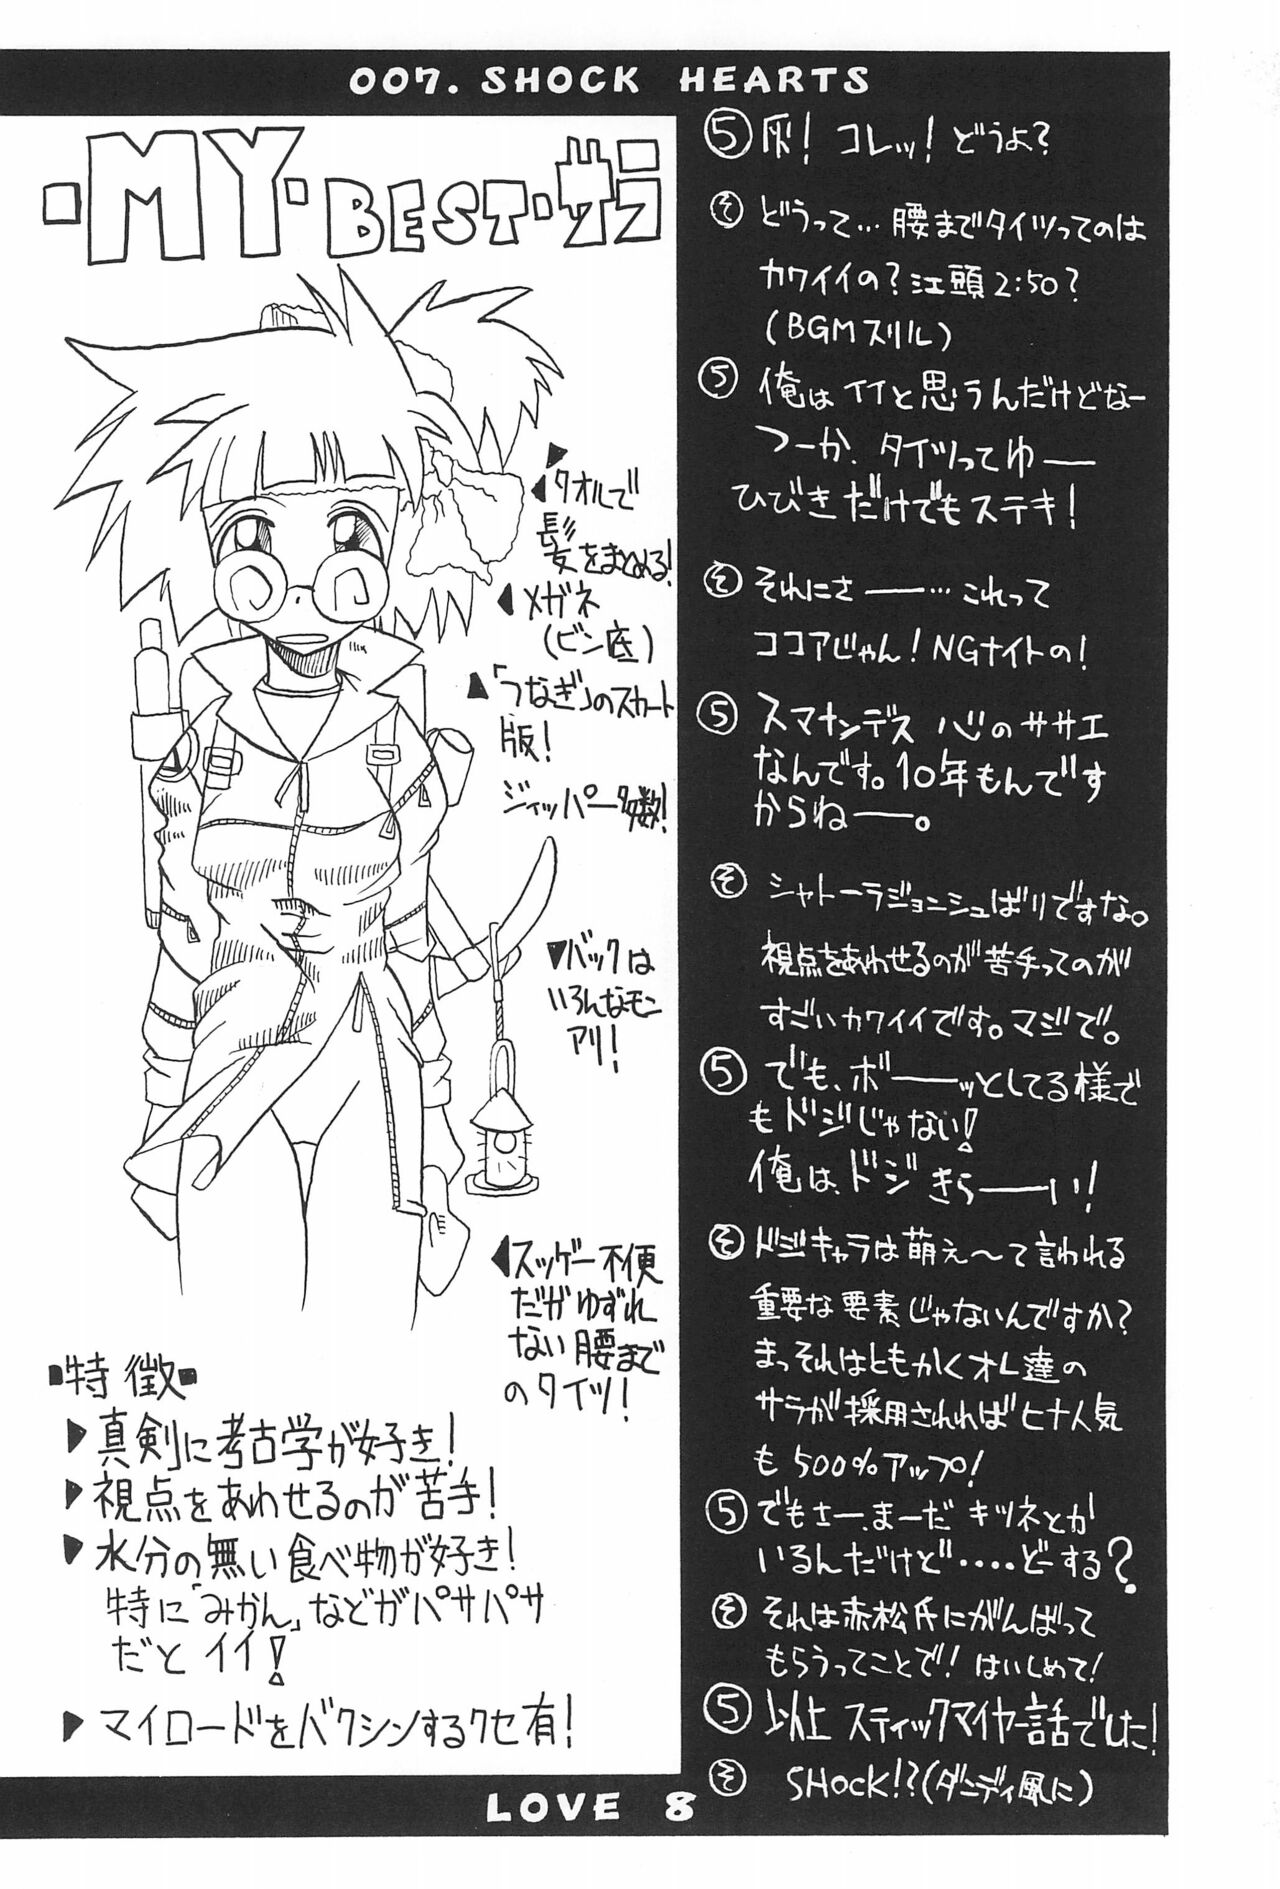 007. SHOCK HEARTS
・MY・BEST・サラ
タオルで
髪をまとめる!
メガネ
(ビン底)
「つなぎ」のスカート
版!
ジィッパー多数!
バックは
いろんなモン
アリ!
スッゲー不便
だがゆずれ
ない腰まで
のタイツ!
特徴
真剣に考古学が好き!
視点をあわせるのが苦手!
水分の無い食べ物が好き!
特に「みかん」などがパサパサ
だとイイ!
マイロードをバクシンするクセ有!
⑤ 灰! コレッ! どうよ?
そ どうって…腰までタイツってのは
カワイイの?江頭2:50?
(BGMスリル)
⑤ 俺はイイと思うんだけどなー
つーか、タイツってゆ――
ひびきだけでもステキ!
そ それにさ――…これって
ココアじゃん!NGナイトの!
⑤ スマナンデス 心のササエ
なんです。10年もんです
からね――。
そ シャトーラジョンシュばりですな。
視点をあわせるのが苦手ってのが
すごいカワイイです。マジで。
⑤ でも、ボ――ッとしてる様で
もドジじゃない!
俺は、ドジきら――い!
そ ドジキャラは萌え〜て言われる
重要な要素じゃないんですか?
まっそれはともかくオレ達の
サラが採用されればヒナ人気
も500%アップ!
⑤ でもさー、まーだキツネとか
いるんだけど‥‥どーする?
そ それは赤松氏にがんばって
もらうってことで! はいしめて!
⑤ 以上 スティックマイヤー話でした!
そ SHOCK!?(ダンディ風に)
LOVE 8